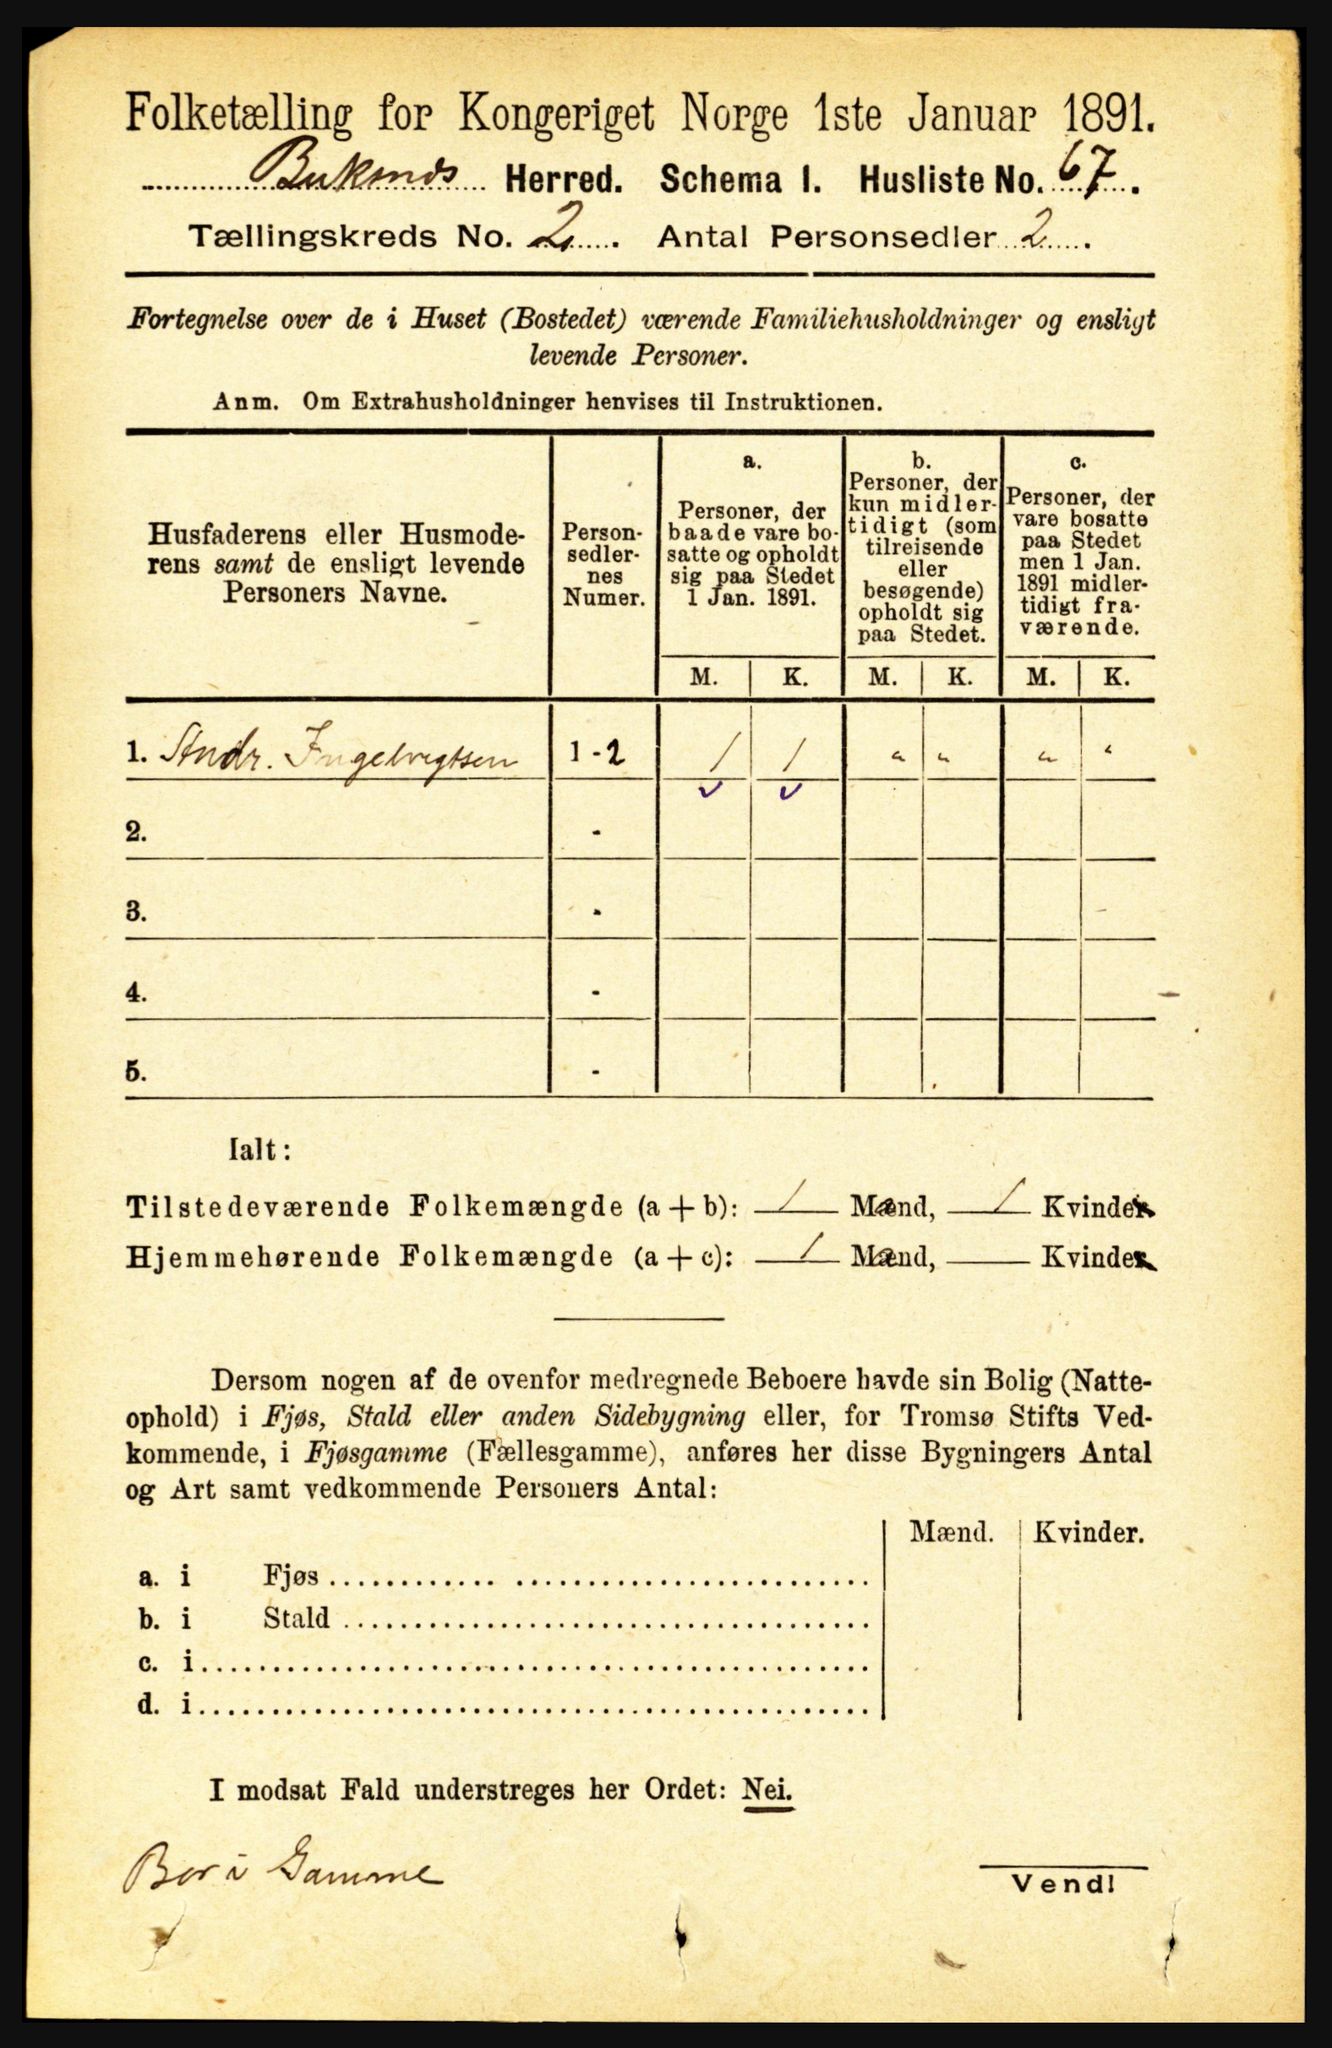 Folketælling for Kongeriget Norge 1ste Januar 1891.
Buksnæs Herred. Schema 1. Husliste No. 67.
Tællingskreds No. 2. Antal Personsedler 2.
Fortegnelse over de i Huset (Bostedet) værende Familiehusholdninger og ensligt
levende Personer.
Anm. Om Extrahusholdninger henvises til Instruktionen.
Husfaderens eller Husmode-
rens samt de ensligt levende
Personers Navne.
Person-
sedler-
nes
Numer.
a.
Personer, der
baade vare bo-
satte og opholdt
sig paa Stedet
1 Jan. 1891.
b.
Personer, der
kun midler-
tidigt (som
tilreisende
eller
besøgende)
opholdt sig
paa Stedet.
c.
Personer, der
vare bosatte
paa Stedet
men 1 Jan.
1891 midler-
tidigt fra-
værende.
M. K. M. K. M. K.
1. Andr. Ingebrigtsen 1-2 1 1 " " " "
2. -
3. -
4. -
5. -
Ialt:
Tilstedeværende Folkemængde (a + b): 1 Mand, 1 Kvinde
Hjemmehørende Folkemængde (a + c): 1 Mand, — Kvinde
Dersom nogen af de ovenfor medregnede Beboere havde sin Bolig (Natte-
ophold) i Fjøs, Stald eller anden Sidebygning eller, for Tromsø Stifts Ved-
kommende, i Fjøsgamme (Fællesgamme), anføres her disse Bygningers Antal
og Art samt vedkommende Personers Antal:
Mænd. Kvinder.
a. i Fjøs
b. i Stald
c. i
d. i
I modsat Fald understreges her Ordet: Nei.
Bor i Gamme
Vend!